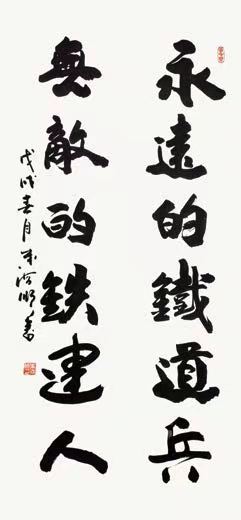 永遠的鐵道兵
無敵的鉄建人
戊戌春月